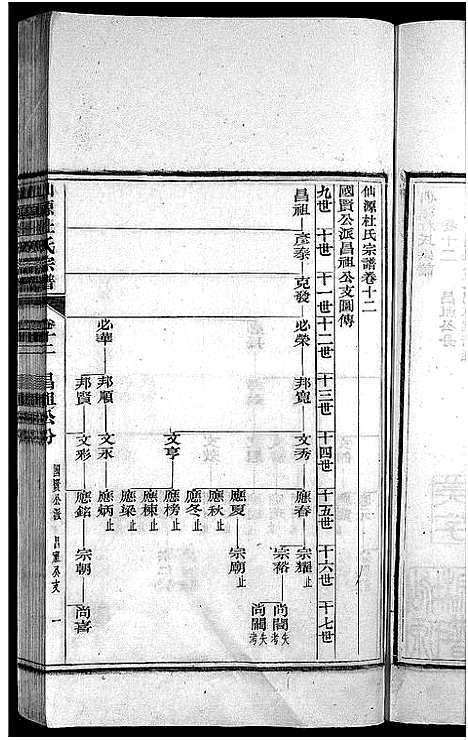 仙源杜氏宗譜卷十二
國賢公派昌祖公支圖傳
九世 十世 十一世 十二世 十三世 十四世 十五世 十六世 十七世
昌祖 彦泰 克發 必榮 邦寬 文秀 應春 宗耀止
宗裕 尚閣失考
尚閫失考
應夏 宗廟止
應秋止
應冬止
文亨 應榜止
應棟止
應梁止
必華 邦順 文永 應炳止
邦賢 文彩 應銘 宗朝 尚喜
仙源杜氏宗譜 卷十二 昌祖公份 國賢公派 昌祖公支 一